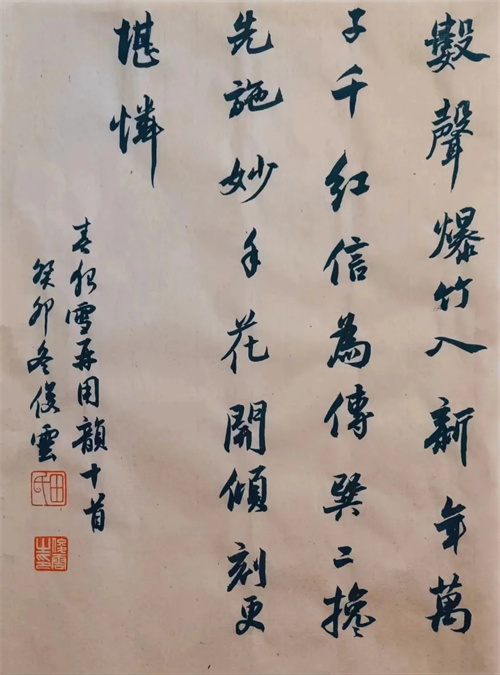 數聲爆竹入新年萬
子千紅信為傳巽二攙
先施妙手花開傾刻更
堪憐
春雪再用韻十首
癸卯冬俊雲
田氏
俊雲之印